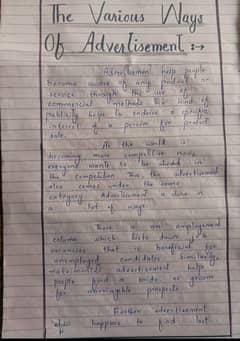 The Various Ways
Of Advertisement :→
Advertisement help people
become aware of any product or
service through the use of
commercial methods. The kind of
publicity helps to endorse a specific
interest of a person for product
sale.
As the world is
becoming more competitive now,
everyone wants to be ahead in
the competition. Thus the advertisement
also comes under the same
category. Advertisement is done in
a lot of ways.
There is an employment
column which lists down job
vacancies that is beneficial for
unemployed candidates. Similarly
matrimonial advertisement helps
people find a bride or groom
for marriageable prospects.
Further advertisement
also happens to find lost